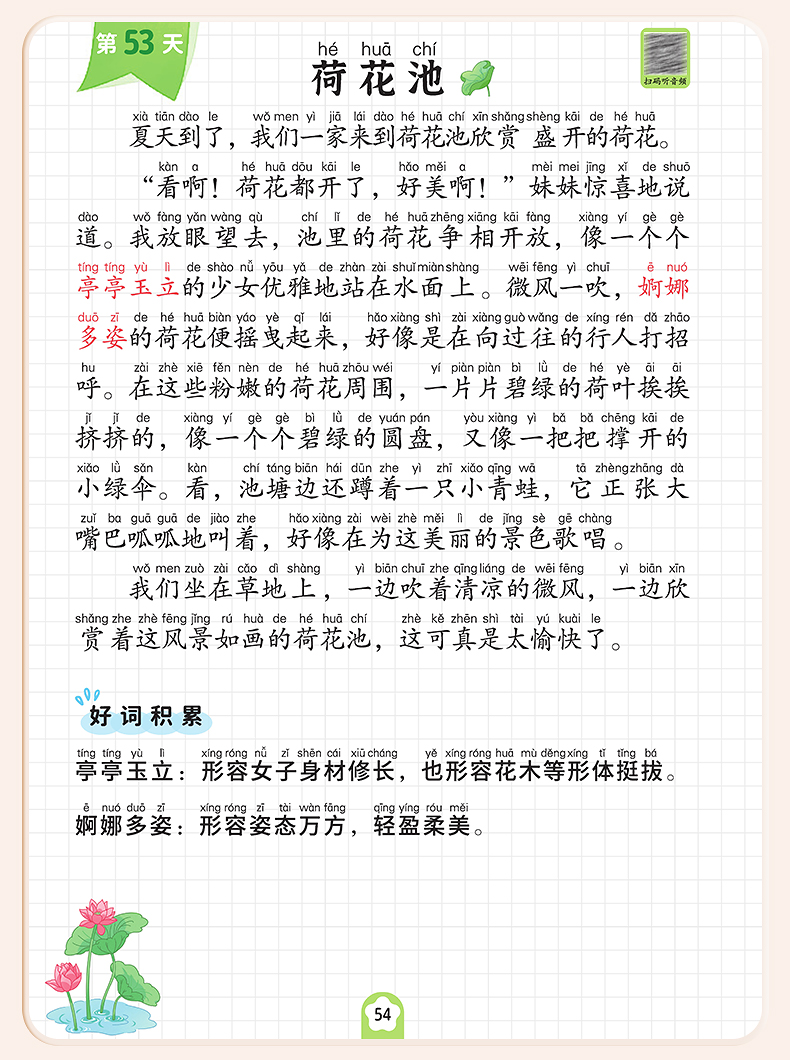 第53天
hé huā chí
荷花池
扫码听音频
xià tiān dào le wǒ men yì jiā lái dào hé huā chí xīn shǎng shèng kāi de hé huā
夏天到了，我们一家来到荷花池欣赏盛开的荷花。
kàn a hé huā dōu kāi le hǎo měi a mèi mei jīng xǐ de shuō
“看啊！荷花都开了，好美啊！”妹妹惊喜地说
dào wǒ fàng yǎn wàng qù chí lǐ de hé huā zhēng xiāng kāi fàng xiàng yí gè gè
道。我放眼望去，池里的荷花争相开放，像一个个
tíng tíng yù lì de shào nǚ yōu yǎ de zhàn zài shuǐ miàn shàng wēi fēng yì chuī ē nuó
亭亭玉立的少女优雅地站在水面上。微风一吹，婀娜
duō zī de hé huā biàn yáo yè qǐ lái hǎo xiàng shì zài xiàng guò wǎng de xíng rén dǎ zhāo
多姿的荷花便摇曳起来，好像是在向过往的行人打招
hu zài zhè xiē fěn nèn de hé huā zhōu wéi yí piàn piàn bì lǜ de hé yè āi āi
呼。在这些粉嫩的荷花周围，一片片碧绿的荷叶挨挨
jǐ jǐ de xiàng yí gè gè bì lǜ de yuán pán yòu xiàng yì bǎ bǎ chēng kāi de
挤挤的，像一个个碧绿的圆盘，又像一把把撑开的
xiǎo lǜ sǎn kàn chí táng biān hái dūn zhe yì zhī xiǎo qīng wā tā zhèng zhāng dà
小绿伞。看，池塘边还蹲着一只小青蛙，它正张大
zuǐ ba guā guā de jiào zhe hǎo xiàng zài wèi zhè měi lì de jǐng sè gē chàng
嘴巴呱呱地叫着，好像在为这美丽的景色歌唱。
wǒ men zuò zài cǎo dì shàng yì biān chuī zhe qīng liáng de wēi fēng yì biān xīn
我们坐在草地上，一边吹着清凉的微风，一边欣
shǎng zhe zhè fēng jǐng rú huà de hé huā chí zhè kě zhēn shì tài yú kuài le
赏着这风景如画的荷花池，这可真是太愉快了。
好词积累
tíng tíng yù lì xíng róng nǚ zǐ shēn cái xiū cháng yě xíng róng huā mù děng xíng tǐ tǐng bá
亭亭玉立：形容女子身材修长，也形容花木等形体挺拔。
ē nuó duō zī xíng róng zī tài wàn fāng qīng yíng róu měi
婀娜多姿：形容姿态万方，轻盈柔美。
54